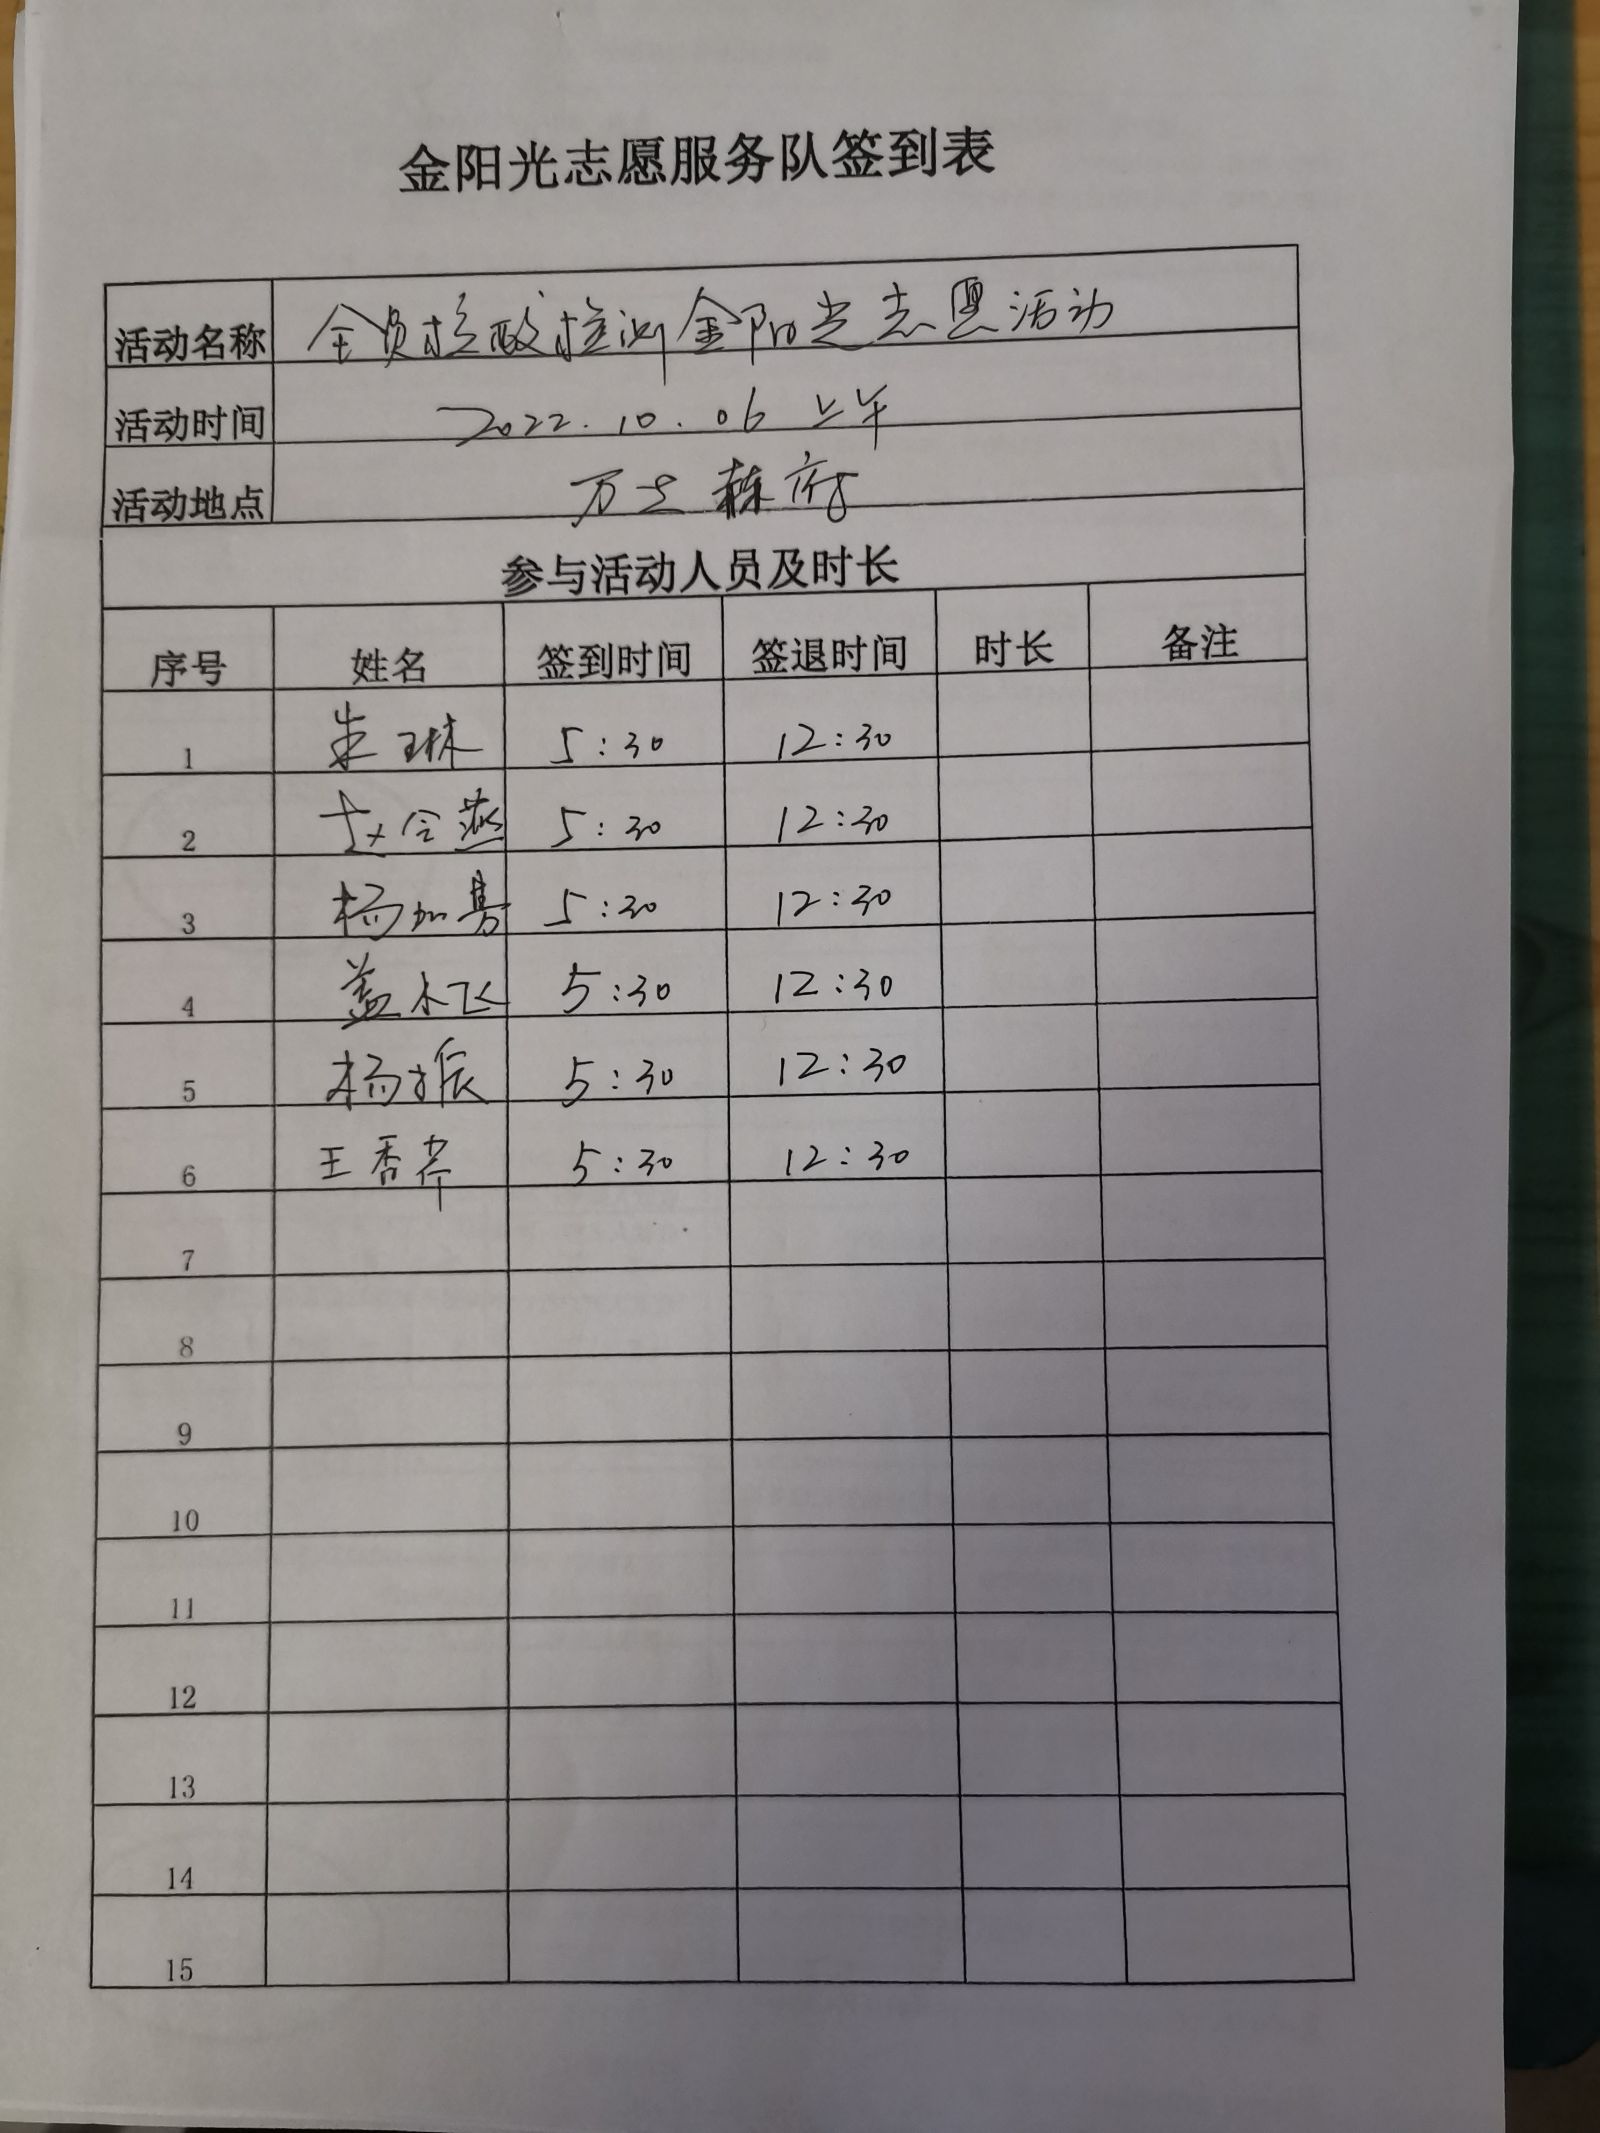 金阳光志愿服务队签到表
活动名称 全员核酸检测金阳光志愿活动
活动时间 2022.10.06 上午
活动地点 万士 府
参与活动人员及时长
序号 姓名 签到时间 签退时间 时长 备注
1 朱琳 5:30 12:30
2 赵令燕 5:30 12:30
3 杨如 5:30 12:30
4 盖木飞 5:30 12:30
5 杨振 5:30 12:30
6 王香芹 5:30 12:30
7
8
9
10
11
12
13
14
15